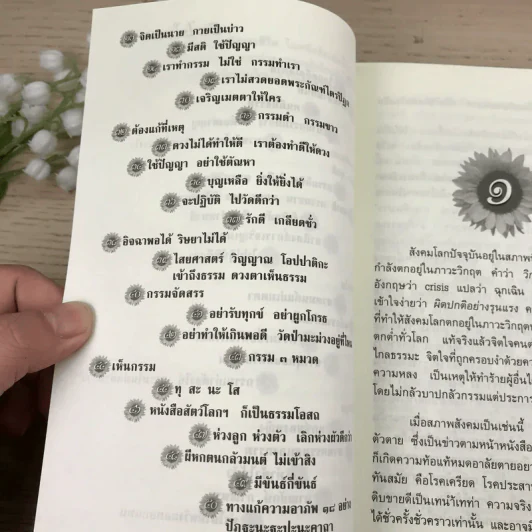 จิตเป็นนาย กายเป็นบ่าว
มีสติ ใช้ปัญญา
เราทำกรรม ไม่ใช่ กรรมทำเรา
เราไม่สวดยอดพระกัณฑ์ไตรปิฎก
เจริญเมตตาให้ใคร
กรรมดำ กรรมขาว
ต้องแก้ที่เหตุ
ดวงไม่ได้ทำให้ดี เราต้องทำดีให้ดวง
ใช้ปัญญา อย่าใช้ตัณหา
บุญเหลือ ยิ่งให้ยิ่งได้
จะปฏิบัติ ไปวัดดีกว่า
รักดี เกลียดชั่ว
อิจฉาพอได้ ริษยาไม่ได้
ไสยศาสตร์ วิญญาณ โอปปาติกะ
เข้าถึงธรรม ดวงตาเห็นธรรม
กรรมจัดสรร
อย่ารับทุกข์ อย่าผูกโกรธ
อย่าทำให้เกินพอดี วัดป่ามะม่วงอยู่ที่ไหน
กรรม ๓ หมวด
เห็นกรรม
ทุ สะ นะ โส
หนังสือสัตว์โลกฯ ก็เป็นธรรมโอสถ
ห่วงลูก ห่วงตัว เลิกห่วงผัวดีกว่า
ผีหกตนกลัวมนต์ ไม่เข้าสิง
มีขันธ์กี่ขันธ์
ทางแก้ความอาภัพ ๑๘ อย่าง
ปัฏฐะนะฐะปะนะคาถา
๑
สังคมโลกปัจจุบันอยู่ในสภาพ
กำลังตกอยู่ในภาวะวิกฤต คำว่า
อังกฤษว่า crisis แปลว่า ฉุกเฉิน
เข้าใจง่ายว่า ผิดปกติอย่างรุนแรง
ที่ทำให้สังคมโลกตกอยู่ในภาวะวิกฤต
ตกต่ำทั่วโลก แท้จริงแล้วจิตใจคน
ไกลธรรมะ จิตใจที่ถูกครอบงำด้วย
ความหลง เป็นเหตุให้ทำร้ายผู้อื่น
โดยไม่กลัวบาปกลัวกรรมแต่ประการ
เมื่อสภาพสังคมเป็นเช่นนี้
ตัวตาย ซึ่งเป็นข่าวตามหน้าหนังสือ
ก็เกิดความท้อแท้หมดอาลัยตายอยาก
ทันสมัย คือโรคเครียด โรคประสาท
ดิบขายดีเป็นเทน้ำเทท่า ความจริง
ได้ชั่วครั้งชั่วคราวเท่านั้น และอาจ